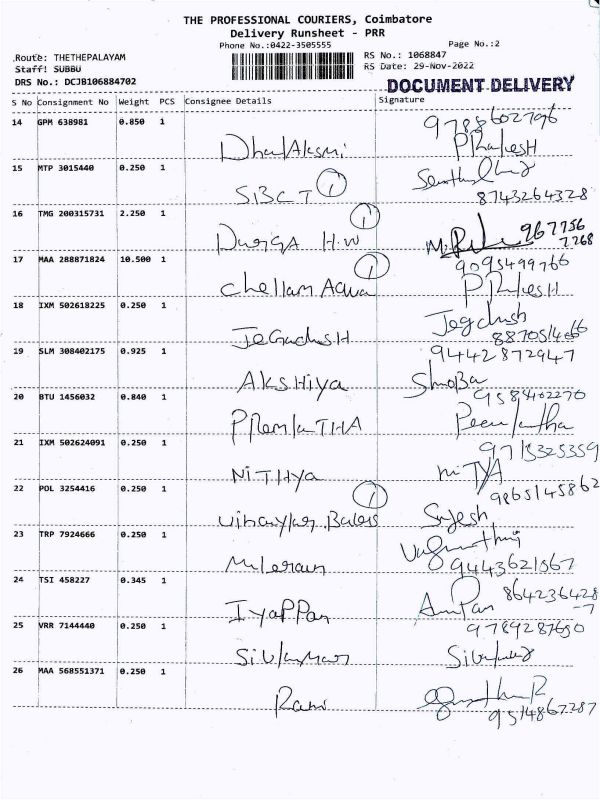 THE PROFESSIONAL COURIERS, Coimbatore
Delivery Runsheet - PRR
Phone No.:0422-3505555 Page No.:2
Route: THETHEPALAYAM RS No.: 1068847
Staff: SUBBU RS Date: 29-Nov-2022
DRS No.: DCJB106884702
DOCUMENT DELIVERY
S No Consignment No Weight PCS Consignee Details Signature
9788602796
14 GPM 638981 0.850 1
15 MTP 3015440 0.250 1
SIBCT 1 8743264328
16 TMG 200315731 2.250 1 1
DURGA H.W 967756
7268
17 MAA 288871824 10.500 1 1 9095499766
Chellam Aqua
18 IXM 502618225 0.250 1 Jegdush
19 SLM 308402175 0.925 1 9442872947
AKSHIYA ShoBa
20 BTU 1456032 0.840 1 958402270
21 IXM 502624091 0.250 1 9715325359
NiTHya NiTYA
22 POL 3254416 0.250 1 1 9865145862
Sujesh
23 TRP 7924666 0.250 1
9443621567
24 TSI 458227 0.345 1 864236428
-7
IyaPPan
25 VRR 7144440 0.250 1 9789287690
26 MAA 568551371 0.250 1
Rani 9514867287